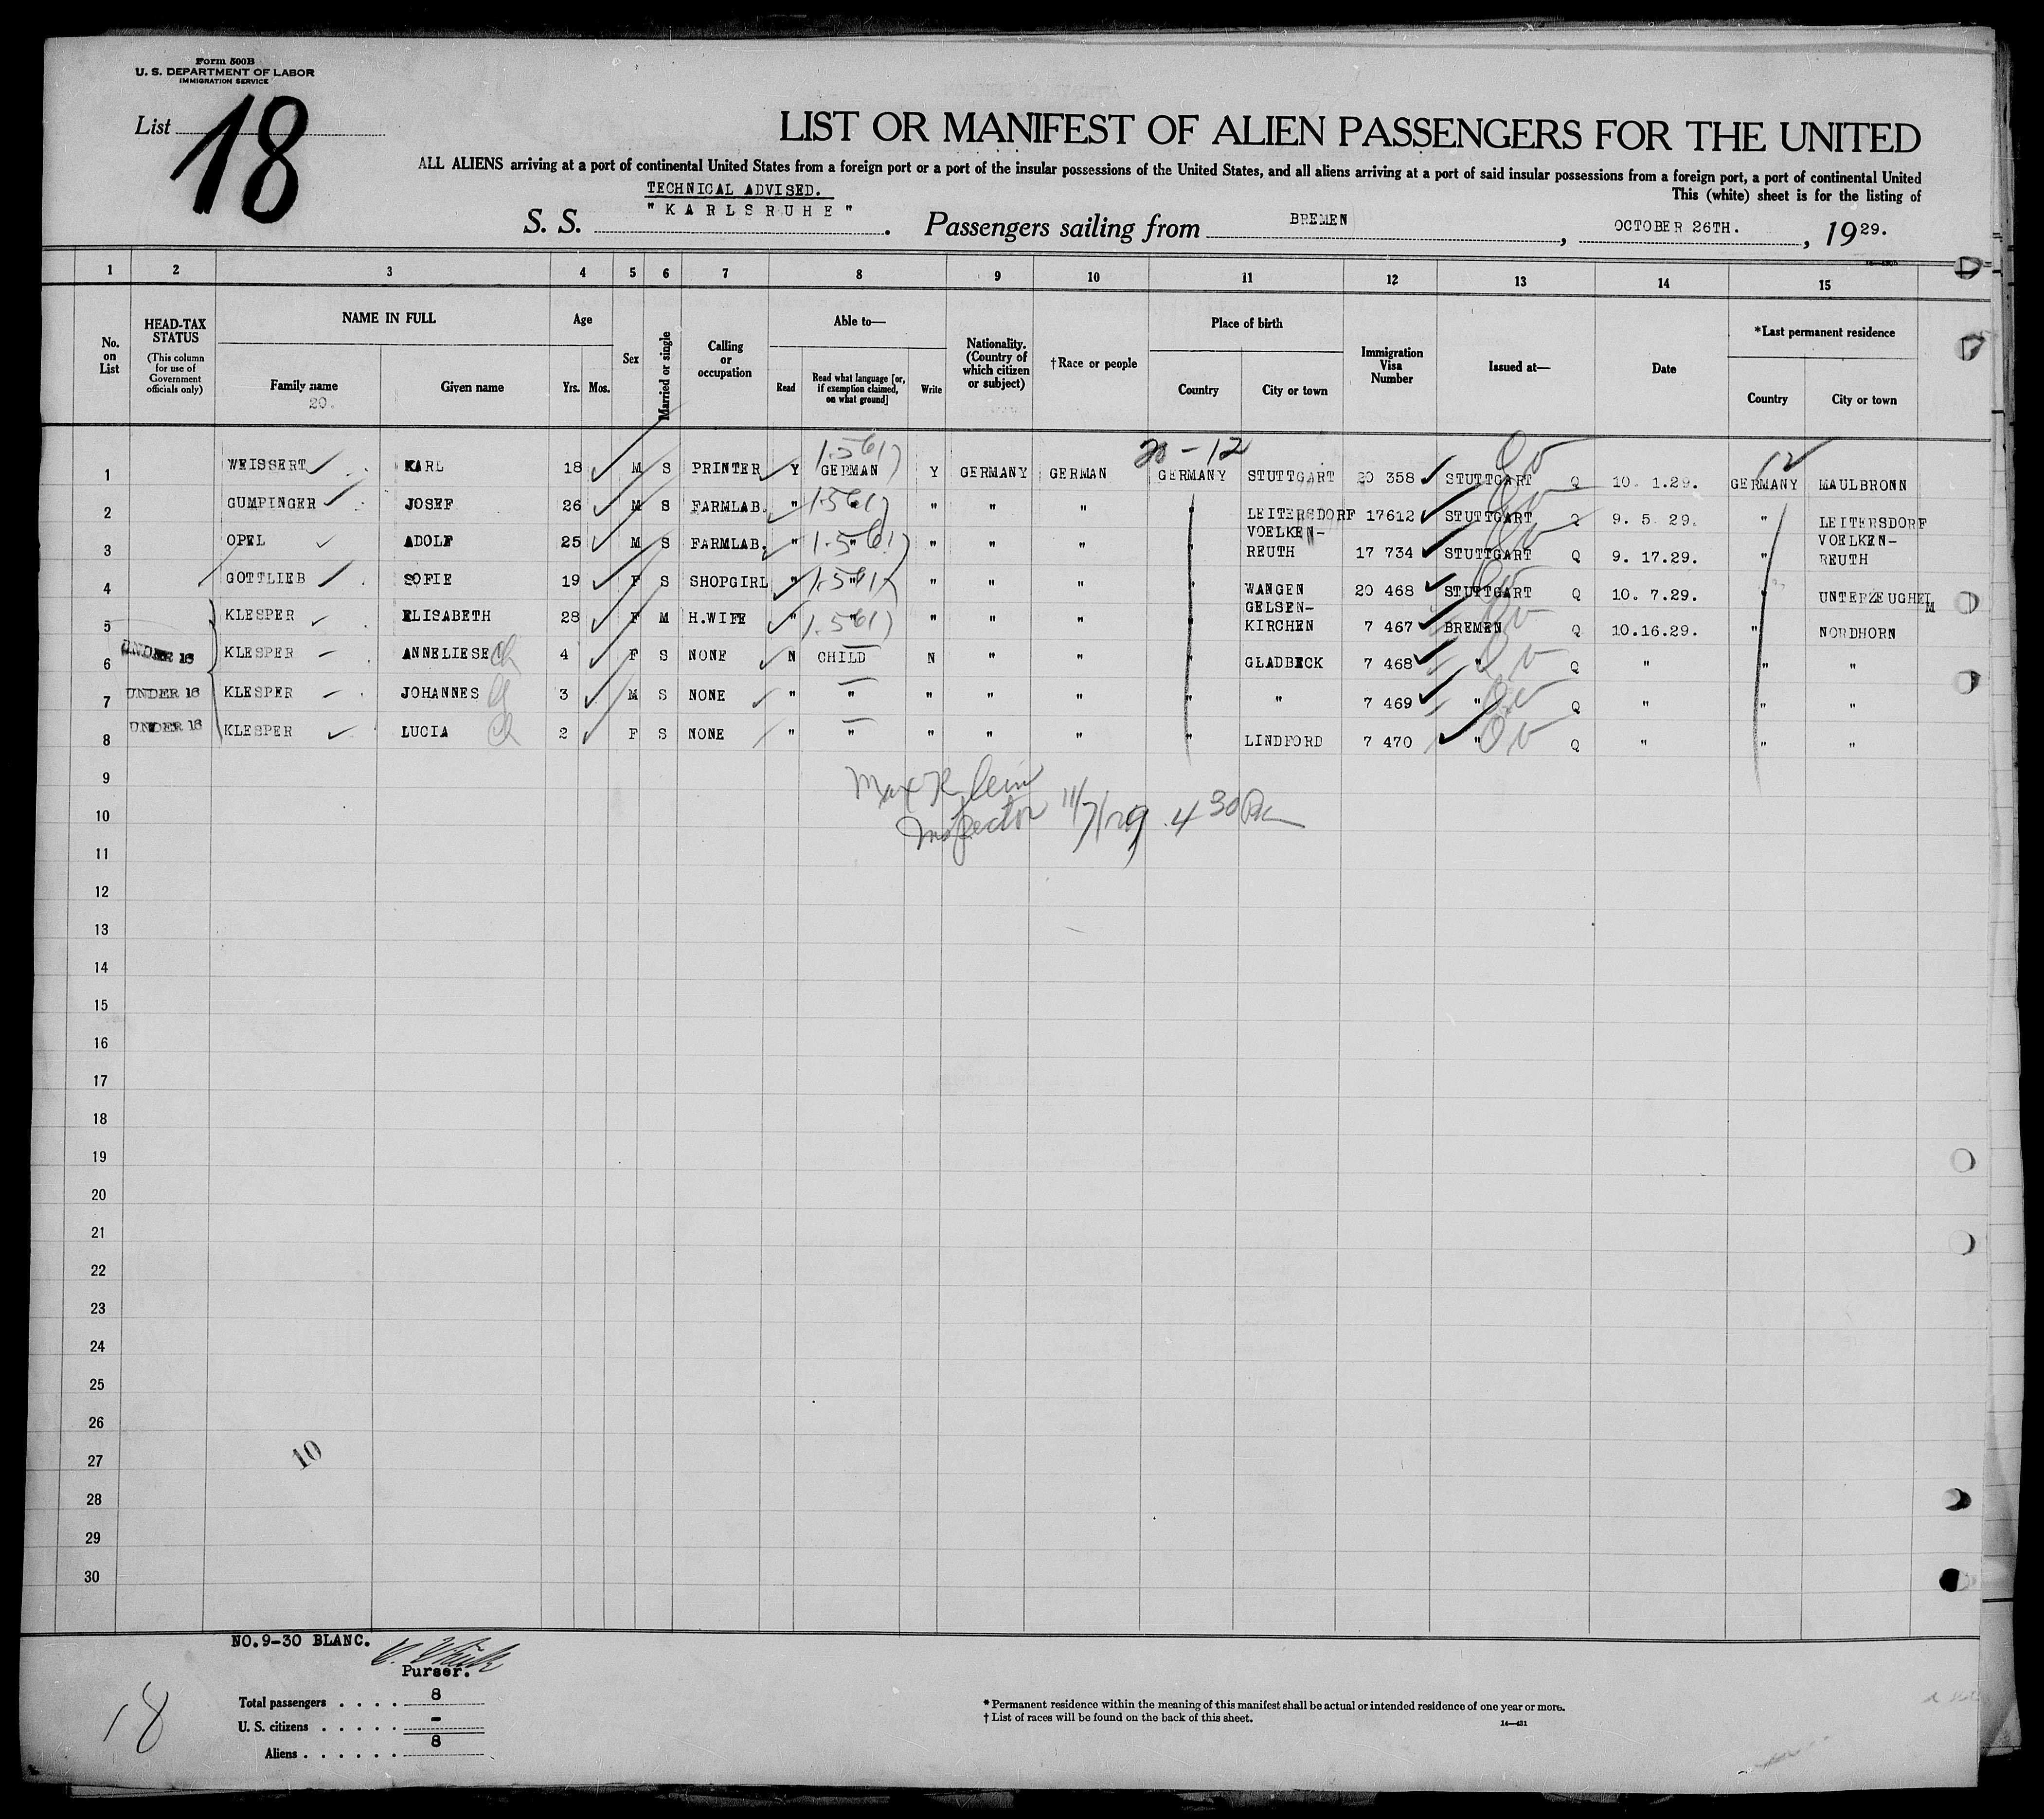 Form 500B
U. S. DEPARTMENT OF LABOR
IMMIGRATION SERVICE
List 18
LIST OR MANIFEST OF ALIEN PASSENGERS FOR THE UNITED
ALL ALIENS arriving at a port of continental United States from a foreign port or a port of the insular possessions of the United States, and all aliens arriving at a port of said insular possessions from a foreign port, a port of continental United
This (white) sheet is for the listing of
TECHNICAL ADVISED.
S. S. "KARLSRUHE". Passengers sailing from BREMEN, OCTOBER 26TH., 1929.
1 2 3 4 5 6 7 8 9 10 11 12 13 14 15
No. on List
HEAD-TAX STATUS (This column for use of Government officials only)
NAME IN FULL Family name Given name
20.
Age Yrs. Mos.
Sex
Married or single
Calling or occupation
Able to— Read Read what language [or, if exemption claimed, on what ground] Write
Nationality. (Country of which citizen or subject)
†Race or people
Place of birth Country City or town
Immigration Visa Number
Issued at—
Date
*Last permanent residence Country City or town
20-12
12
1 WEISSERT KARL 18 M S PRINTER Y GERMAN Y GERMANY GERMAN GERMANY STUTTGART 20 358 STUTTGART Q 10. 1.29. GERMANY MAULBRONN
2 GUMPINGER JOSEF 26 M S FARMLAB. " " " " " " LEITERSDORF 17612 STUTTGART Q 9. 5. 29. " LEITERSDORF
3 OPEL ADOLF 25 M S FARMLAB. " " " " " " VOELKEN-REUTH 17 734 STUTTGART Q 9. 17.29. " VOELKEN-REUTH
4 GOTTLIEB SOFIE 19 F S SHOPGIRL " " " " " " WANGEN 20 468 STUTTGART Q 10. 7.29. " UNTERZEUGHEIM
5 KLESPER ELISABETH 28 F M H.WIFE " " " " " " GELSEN-KIRCHEN 7 467 BREMEN Q 10.16.29. " NORDHORN
6 UNDER 16 KLESPER ANNELIESE 4 F S NONE N CHILD N " " " GLADBECK 7 468 " Q " " "
7 UNDER 16 KLESPER JOHANNES 3 M S NONE " " " " " " " 7 469 " Q " " "
8 UNDER 16 KLESPER LUCIA 2 F S NONE " " " " " " LINDFORD 7 470 " Q " " "
9
Max Klein
10
Inspector 11/7/29 4 30 PM
11
12
13
14
15
16
17
18
19
20
21
22
23
24
25
26
27
10
28
29
30
NO.9-30 BLANC.
Purser.
Total passengers . . . . 8
U. S. citizens . . . . . -
Aliens . . . . . . 8
18
* Permanent residence within the meaning of this manifest shall be actual or intended residence of one year or more.
† List of races will be found on the back of this sheet.
14—431